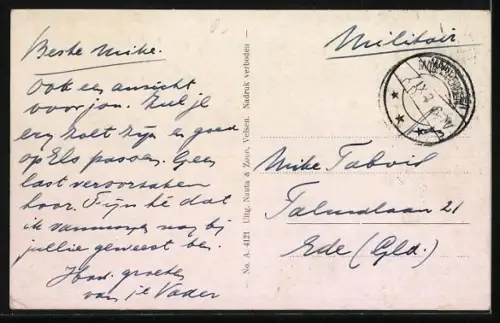 Beste Mike.
Ook een ansicht
voor jou. Zul je
erg zoet zijn en goed
op Els passen. Geen
last veroorzaken
hoor. Fijn hè dat
ik vanmorgen nog bij
jullie geweest ben.
Hart. groeten
van je Vader
— No. A. 4121 Uitg. Nauta & Zoon, Velsen. Nadruk verboden —
Militair
Mike
Talmalaan 21
Ede (Gld.)